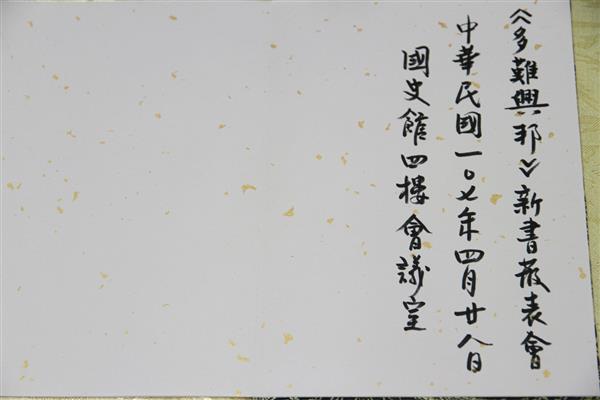 《多難興邦》新書發表會
中華民國一０七年四月廿八日
國史館四樓會議室